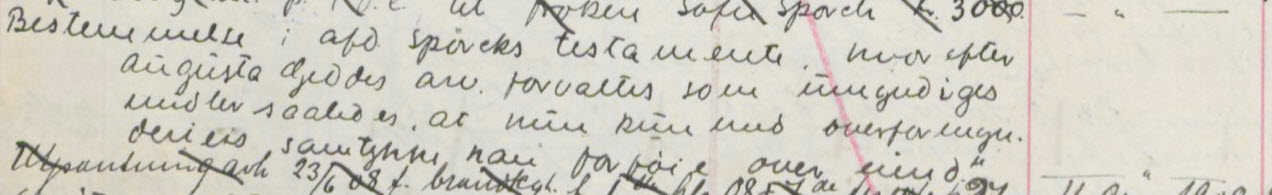 til frøken Sofie Spørck kr. 3000.
Bestemmelse i afd. Spørcks testamente, hvorefter
Augusta Geddes arv forvaltes som umyndiges
midler saaledes, at hun kun med overformyn-
deriets samtykke kan forføie over dem"
Utpantning avh 23/6 08 f. brandkgt. f. 08